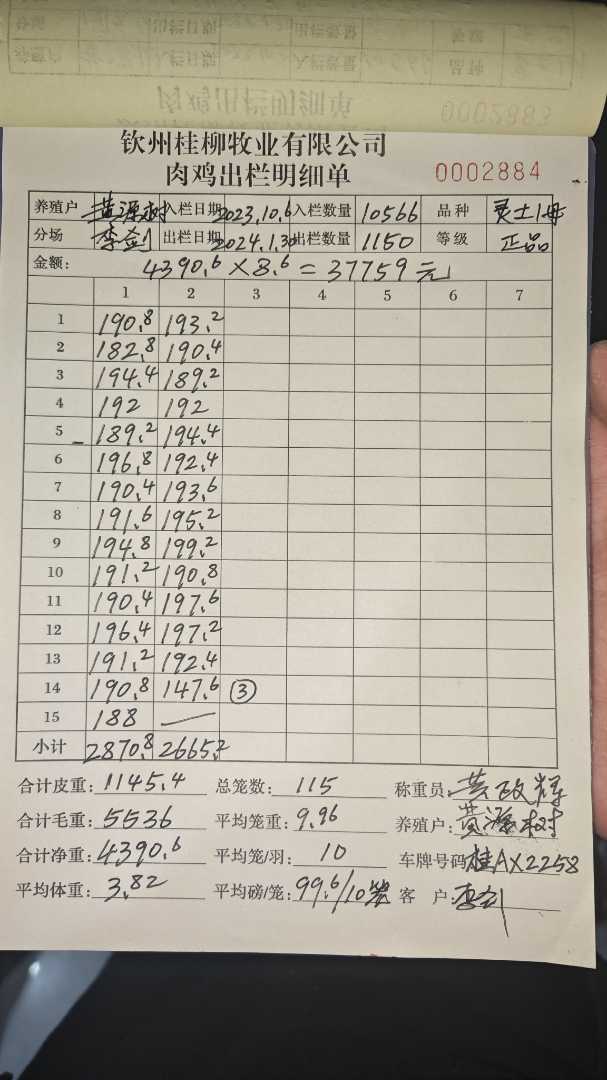 钦州桂柳牧业有限公司
肉鸡出栏明细单 0002884
养殖户 黄源树 入栏日期 2023.10.6 入栏数量 10566 品种 灵士1母
分场 李剑 出栏日期 2024.1.30 出栏数量 1150 等级 正品
金额: 4390.6×8.6=37759元
1 2 3 4 5 6 7
1 190.8 193.2
2 182.8 190.4
3 194.4 189.2
4 192 192
5 189.2 194.4
6 196.8 192.4
7 190.4 193.6
8 191.6 195.2
9 194.8 199.2
10 191.2 190.8
11 190.4 197.6
12 196.4 197.2
13 191.2 192.4
14 190.8 147.6 ③
15 188 —
小计 2870.8 2665.2
合计皮重: 1145.4 总笼数: 115 称重员: 黄政辉
合计毛重: 5536 平均笼重: 9.96 养殖户: 黄源树
合计净重: 4390.6 平均笼/羽: 10 车牌号码: 桂AX2258
平均体重: 3.82 平均磅/笼: 99.6/10 客户: 李剑